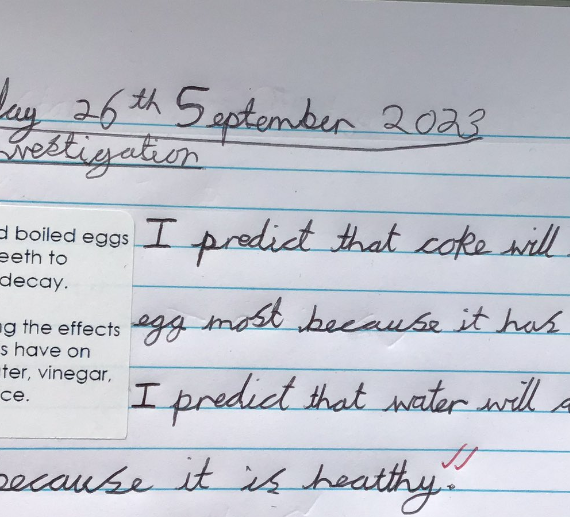 ay 26th September 2023
vestigation
d boiled eggs
eeth to
decay.
g the effects
s have on
ter, vinegar,
ce.
I predict that coke will
egg most because it has
I predict that water will a
because it is healthy.